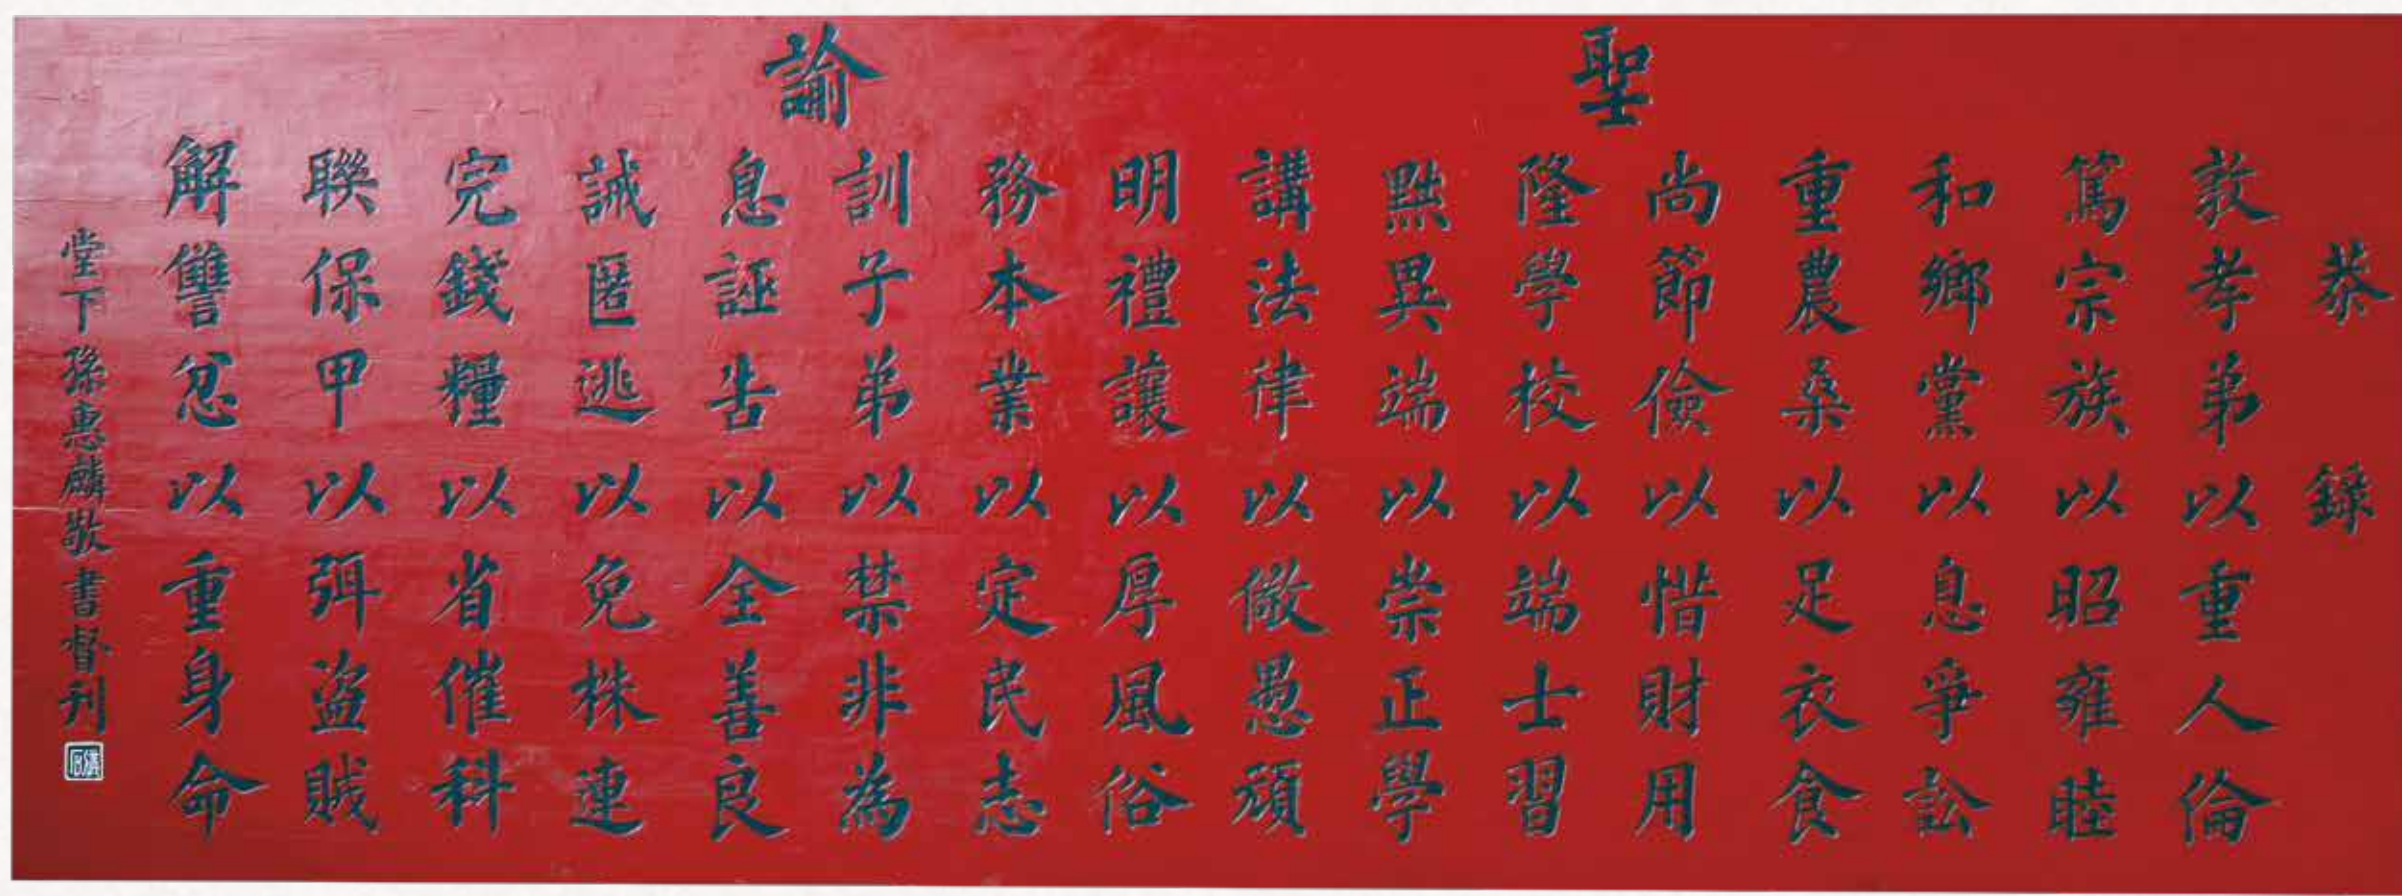 聖諭
恭錄
敦孝弟以重人倫
篤宗族以昭雍睦
和鄉黨以息爭訟
重農桑以足衣食
尚節儉以惜財用
隆學校以端士習
黜異端以崇正學
講法律以儆愚頑
明禮讓以厚風俗
務本業以定民志
訓子弟以禁非為
息誣告以全善良
誡匿逃以免株連
完錢糧以省催科
聯保甲以弭盜賊
解讐忿以重身命
堂下孫惠麟敬書督刊